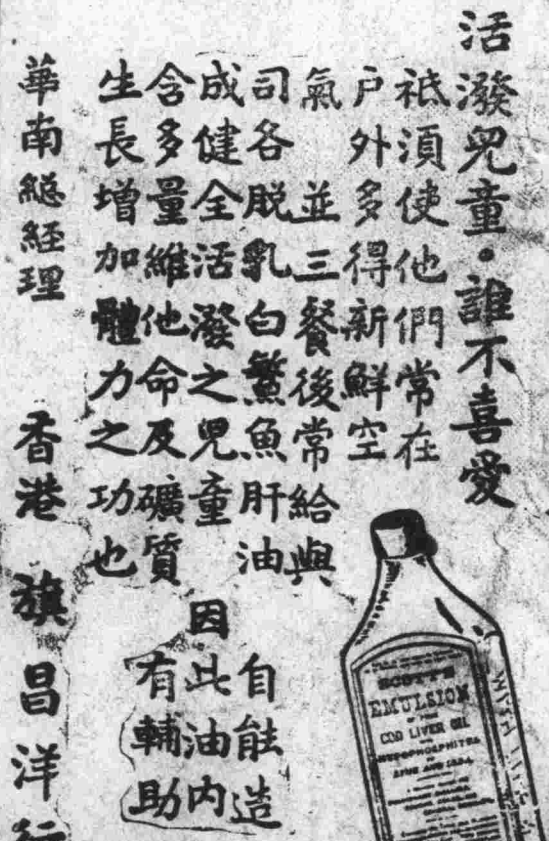 活潑兒童・誰不喜愛
祗須使他們常在
户外多得新鮮空
氣 並三餐後常給與
司各脱乳白鰵魚肝油 自能造
成健全活潑之兒童 因此油内
含多量維他命及礦質 有輔助
生長增加體力之功也
華南緫經理 香港 旗昌洋行
SCOTT'S
EMULSION
COD LIVER OIL
HYPOPHOSPHITES
LIME AND SODA